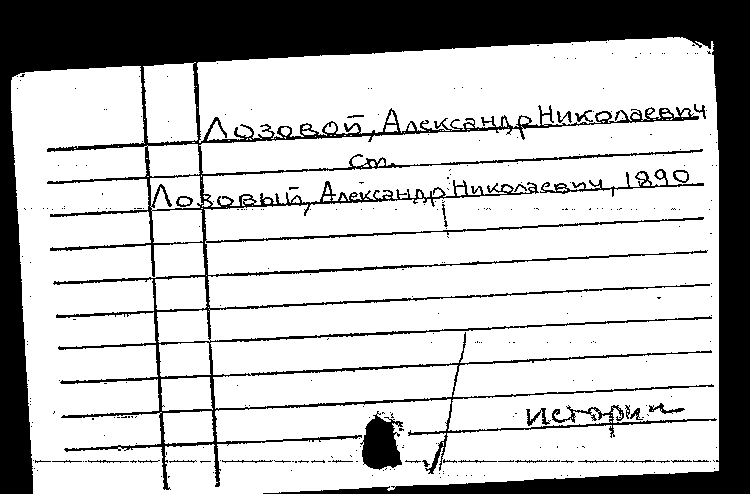 Лозовой, Александр Николаевич
см.
Лозовый, Александр Николаевич, 1890
историк